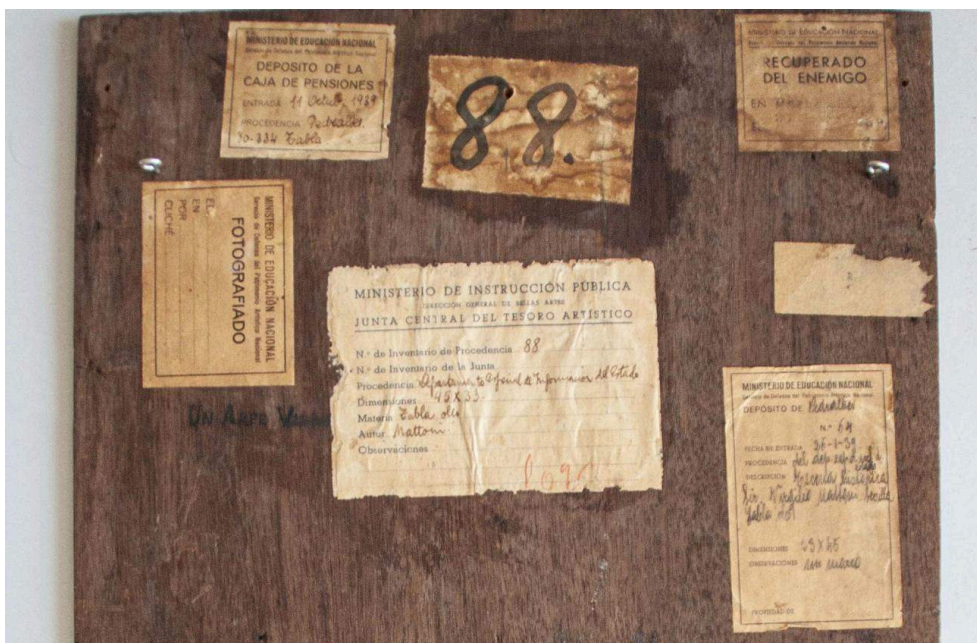 MINISTERIO DE EDUCACIÓN NACIONAL
Servicio de Defensa del Patrimonio Artístico Nacional
DEPÓSITO DE LA
CAJA DE PENSIONES
ENTRADA 11 Octub, 1939
PROCEDENCIA Pedralbes
Tabla
8.8.
MINISTERIO DE EDUCACIÓN NACIONAL
RECUPERADO
DEL ENEMIGO
EN
MINISTERIO DE EDUCACIÓN NACIONAL
Servicio de Defensa del Patrimonio Artístico Nacional
FOTOGRAFIADO
EL
EN
POR
CLICHÉ
MINISTERIO DE INSTRUCCIÓN PÚBLICA
DIRECCIÓN GENERAL DE BELLAS ARTES
JUNTA CENTRAL DEL TESORO ARTÍSTICO
N.º de Inventario de Procedencia 88
N.º de Inventario de la Junta
Procedencia Departamento Español de Información del Estado
Dimensiones 45 X 33
Materia Tabla oleo
Autor Mattoni
Observaciones
UN
MINISTERIO DE EDUCACIÓN NACIONAL
Servicio de Defensa del Patrimonio Artístico Nacional
DEPÓSITO DE Pedralbes
N.º 64
FECHA DE ENTRADA 26-1-39
PROCEDENCIA del
DESCRIPCIÓN Escuela
Virgilio Mattoni Sevilla
tabla
DIMENSIONES
OBSERVACIONES sin marco
PROPIEDAD DE